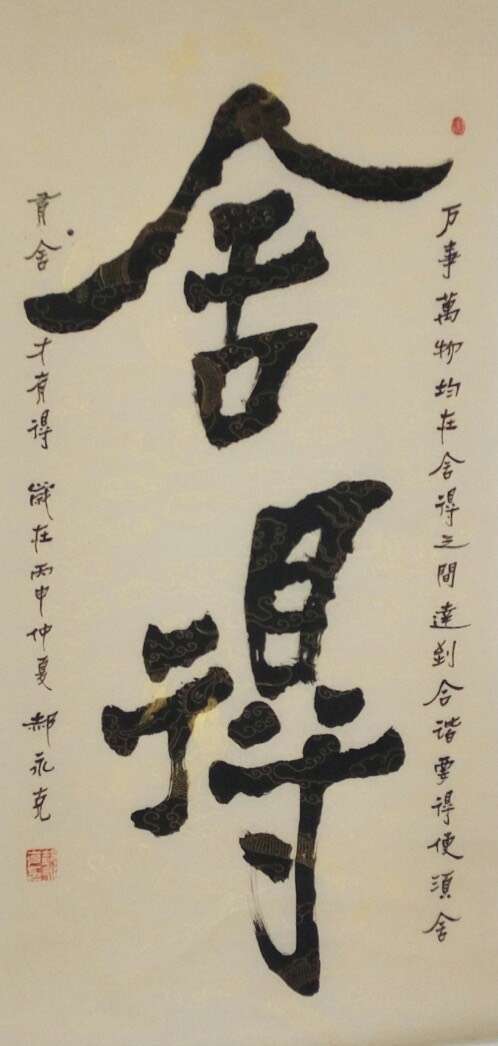 万事萬物均在舍得之間達到合谐要得便須舍
舍得
舍才有得 歲在丙申仲夏 郝永克